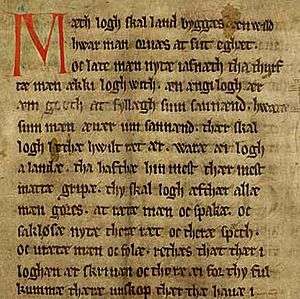 Mæth logh skal land byggæs. æn wild
hwær man oruæs at sit eghæt.
oc late mæn nytæ iafnæth tha thyrf
tæ mæn ækki logh with. æn ængi logh ær
æm goth at fylgæ sum sannænd. hwaræ
sum mæn æuær um sannænd. thær skal
logh letæ hwilt ræt ær. waræ æi logh
a landæ. tha hafthæ hin mest thær mest
mattæ gripæ. thy skal logh æfthær allæ
mæn gøræs. at rætæ mæn oc spakæ. oc
saklosæ nytæ theræ ræt oc theræ spæch.
oc urætæ mæn oc folæ. rethæs thæt thær i
loghæn ær skriuæn oc thoræ æi for thy ful
kummæ theræ unskop thær the hauæ i